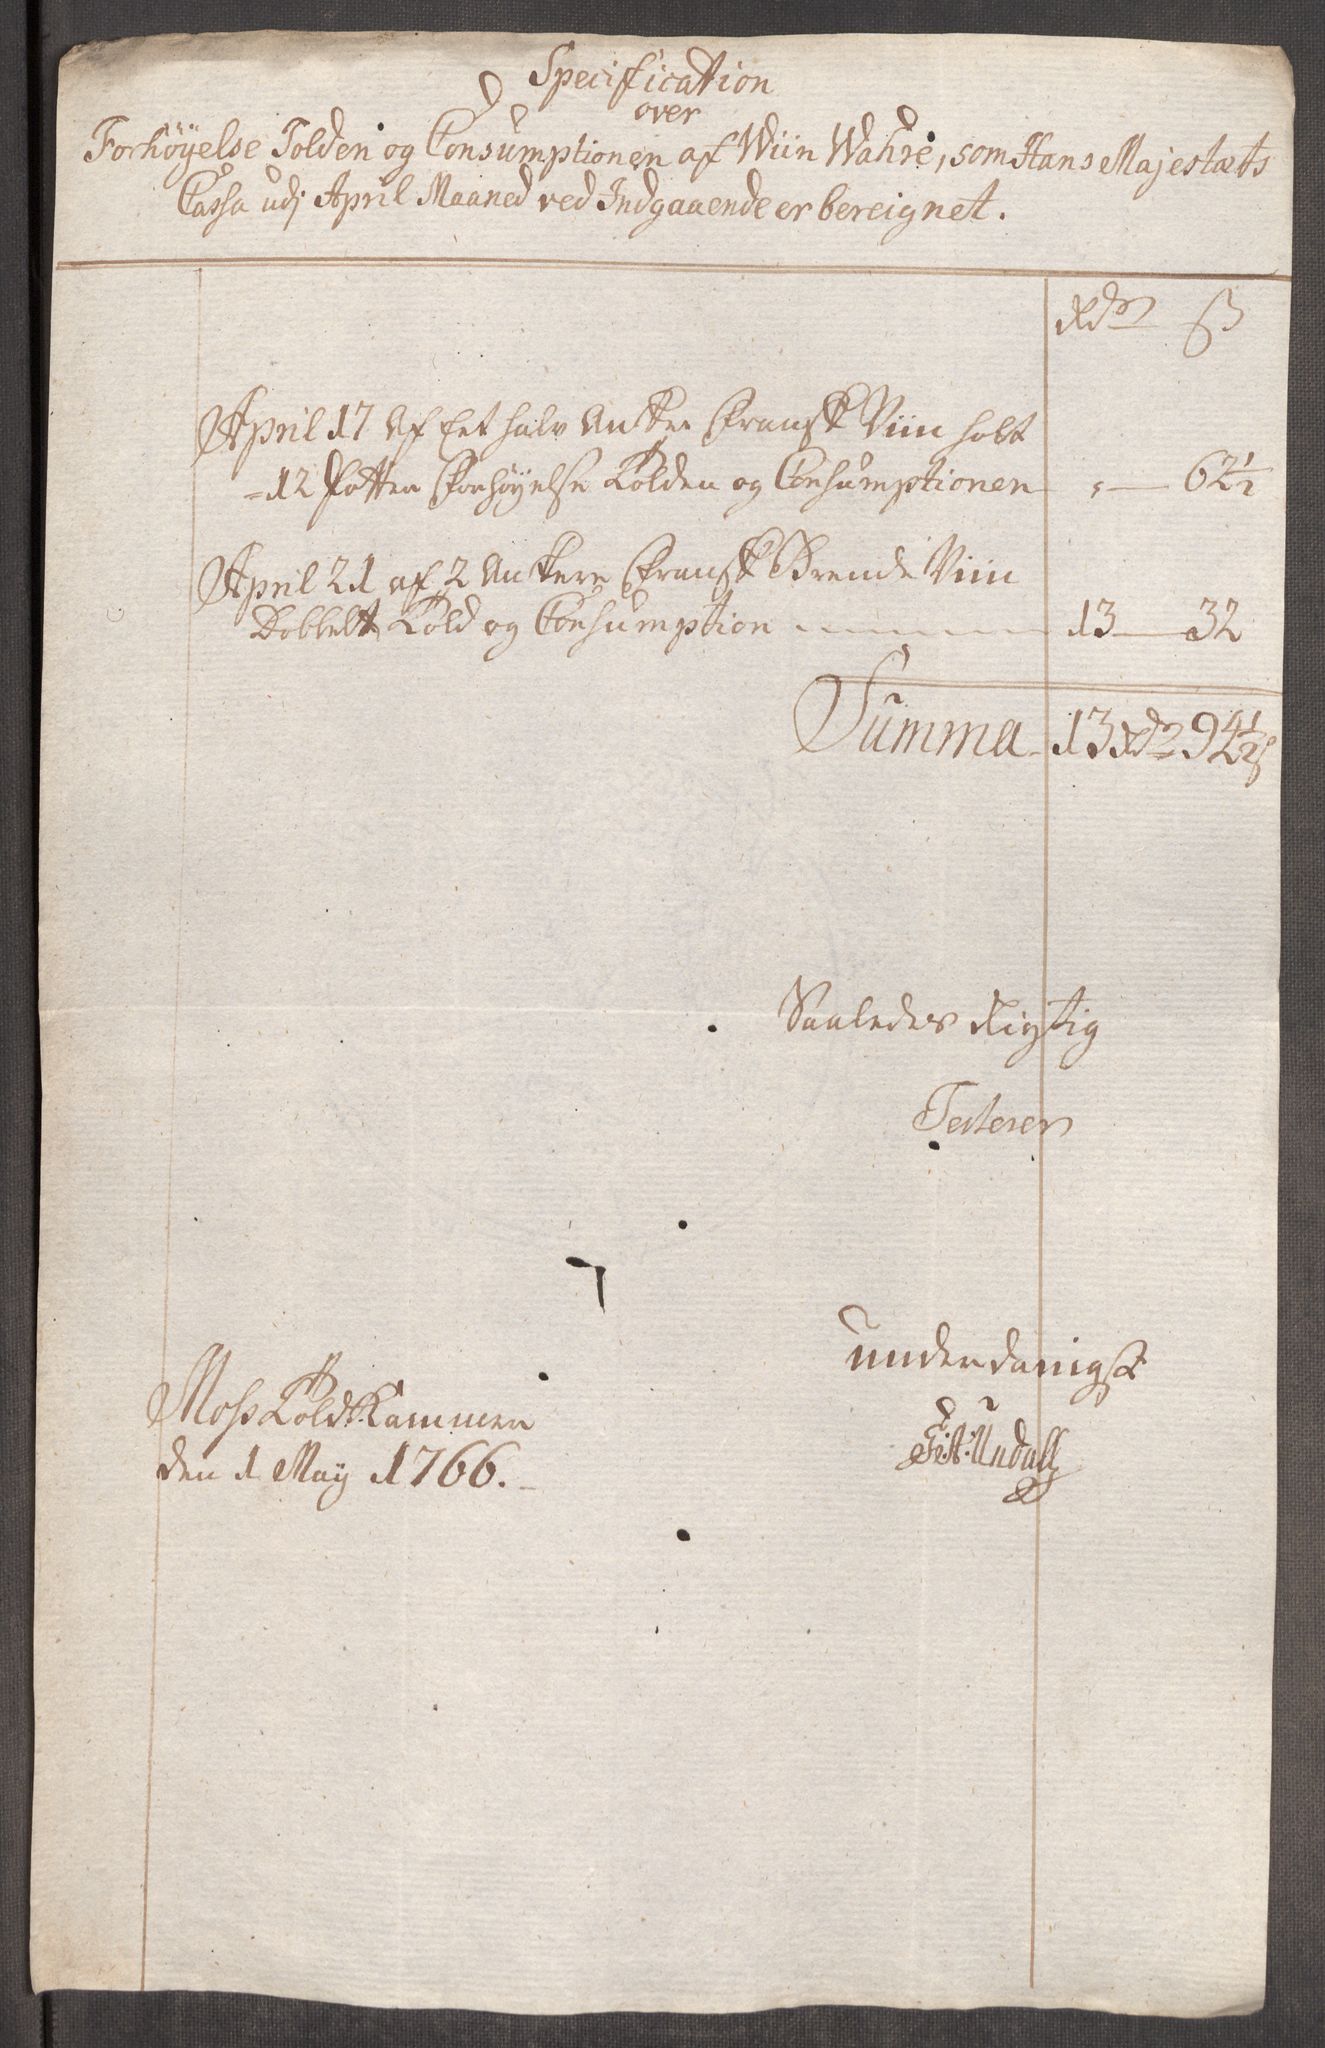 Specification
over
Forhøyelse Tolden og Consumptionen af Wiin Wahre, som Hans Majestæts
Cassa udj April Maaned ved Indgaaende er bereignet.
Rdr ß
April 17 af Eet halv Ancker Fransk Viin holt
12 Potter Forhøyelse Tolden og Consumptionen " — 62 1/2
April 21 af 2 Anckere Fransk Brende Viin
Dobbelt Told og Consumption 13 — 32
Summa 13 Rdr 94 1/2 ß
Saaledes Rigtig
Testerer
underdanigst
Moss Told Kammer
den 1 May 1766.
Undall